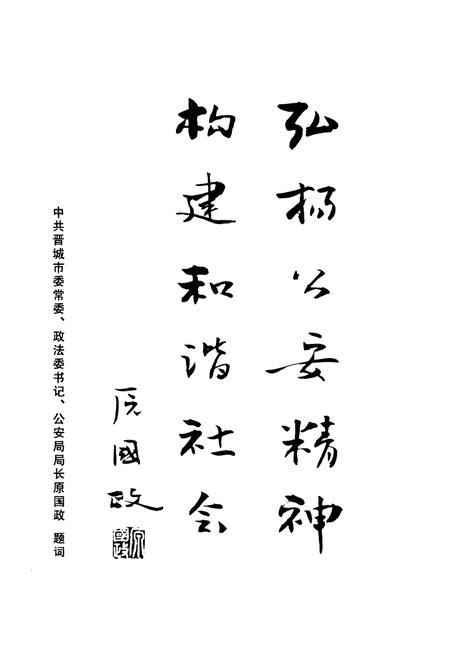 弘扬公安精神
构建和谐社会
原国政
原国政
中共晋城市委常委、政法委书记、公安局局长原国政 题词